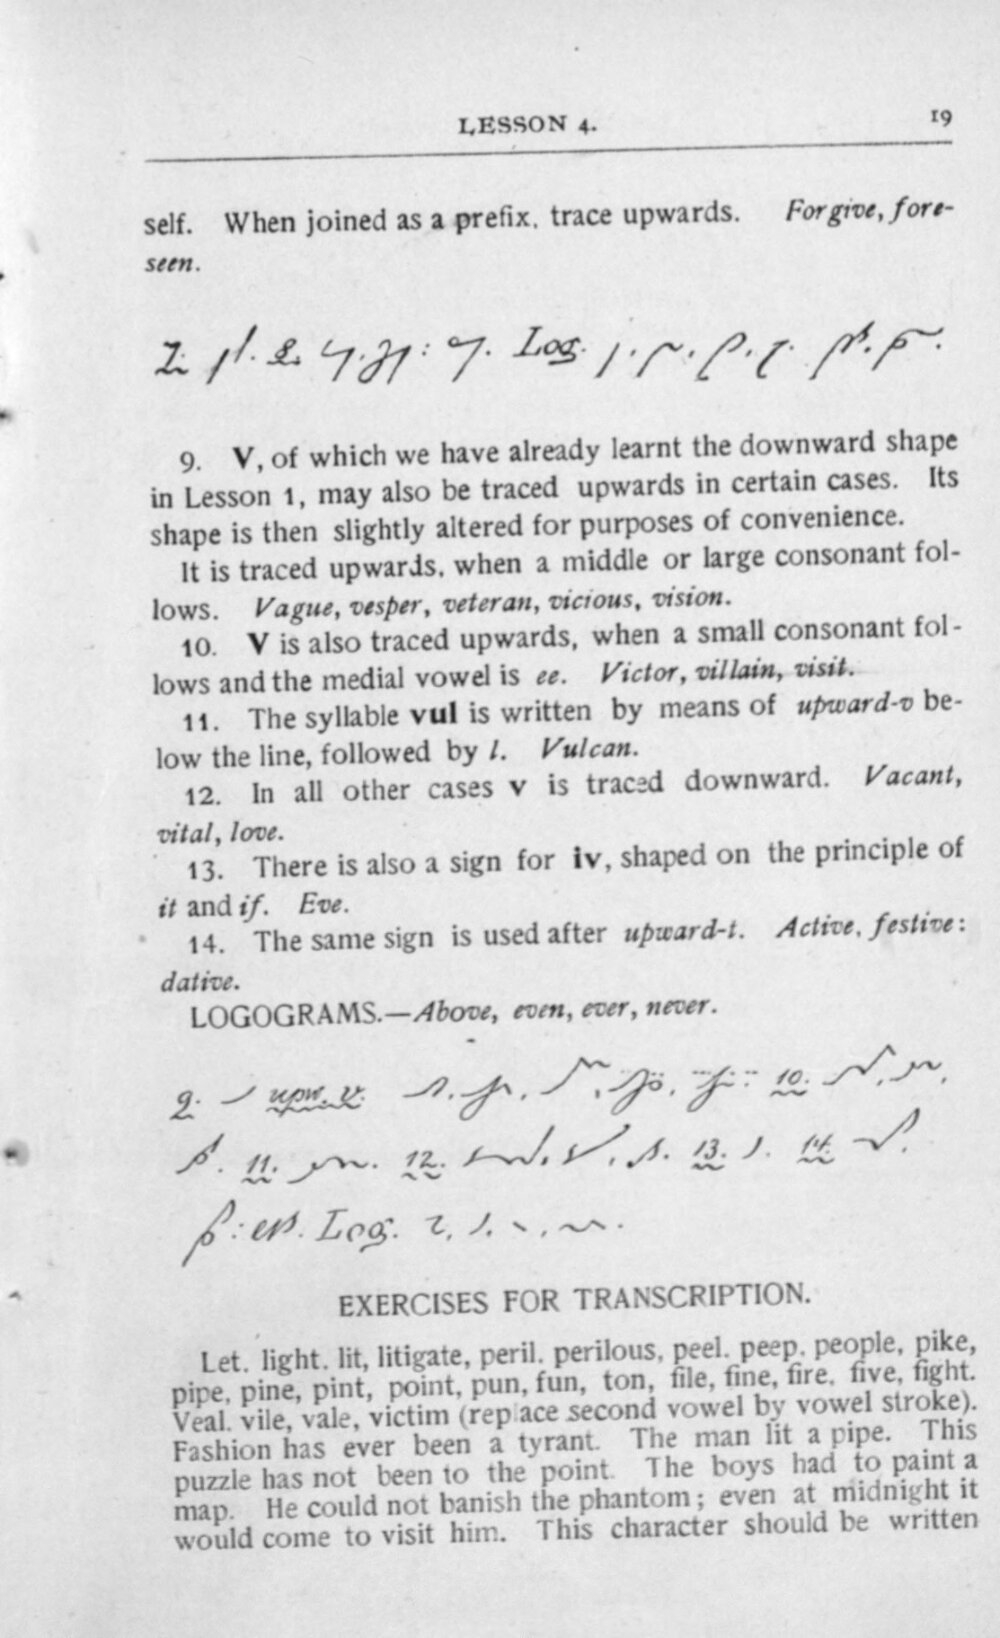 LESSON 4.
19
self. When joined as a prefix, trace upwards. Forgive, fore-
seen.
7. 8. Log.
9. V, of which we have already learnt the downward shape
in Lesson 1, may also be traced upwards in certain cases. Its
shape is then slightly altered for purposes of convenience.
It is traced upwards, when a middle or large consonant fol-
lows. Vague, vesper, veteran, vicious, vision.
10. V is also traced upwards, when a small consonant fol-
lows and the medial vowel is ee. Victor, villain, visit.
11. The syllable vul is written by means of upward-v be-
low the line, followed by l. Vulcan.
12. In all other cases v is traced downward. Vacant,
vital, love.
13. There is also a sign for iv, shaped on the principle of
it and if. Eve.
14. The same sign is used after upward-t. Active, festive:
dative.
LOGOGRAMS.—Above, even, ever, never.
9. upw. v. 10.
11. 12. 13. 14.
Log.
EXERCISES FOR TRANSCRIPTION.
Let, light, lit, litigate, peril, perilous, peel, peep, people, pike,
pipe, pine, pint, point, pun, fun, ton, file, fine, fire, five, fight.
Veal, vile, vale, victim (replace second vowel by vowel stroke).
Fashion has ever been a tyrant. The man lit a pipe. This
puzzle has not been to the point. The boys had to paint a
map. He could not banish the phantom; even at midnight it
would come to visit him. This character should be written